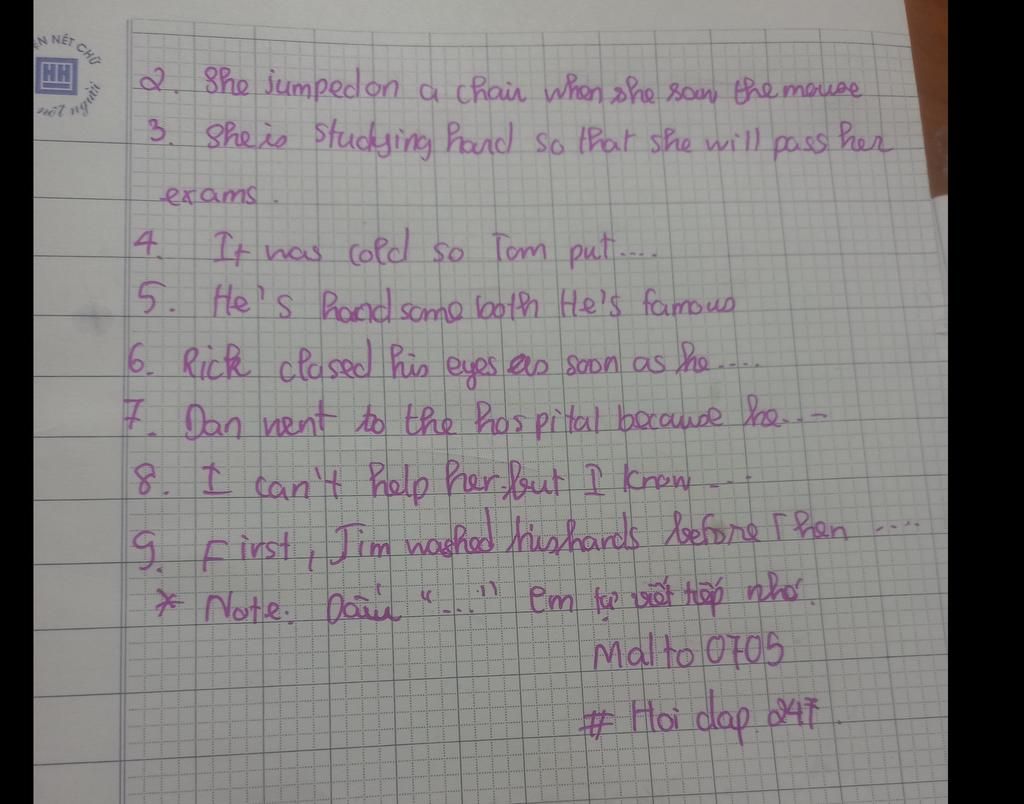 ÉN NÉT CHỮ
HH
nết người
2. She jumped on a chair when she saw the mouse
3. She is studying hard so that she will pass her
exams.
4. It was cold so Tom put....
5. He's handsome both He's famous
6. Rick closed his eyes as soon as he....
7. Dan went to the hospital because he...-
8. I can't help her but I know ...
9. First, Jim washed his hands before Then ....
* Note: Dấu "...." em tự viết tiếp nhé.
Malto 0705
# Hoi dap 247.